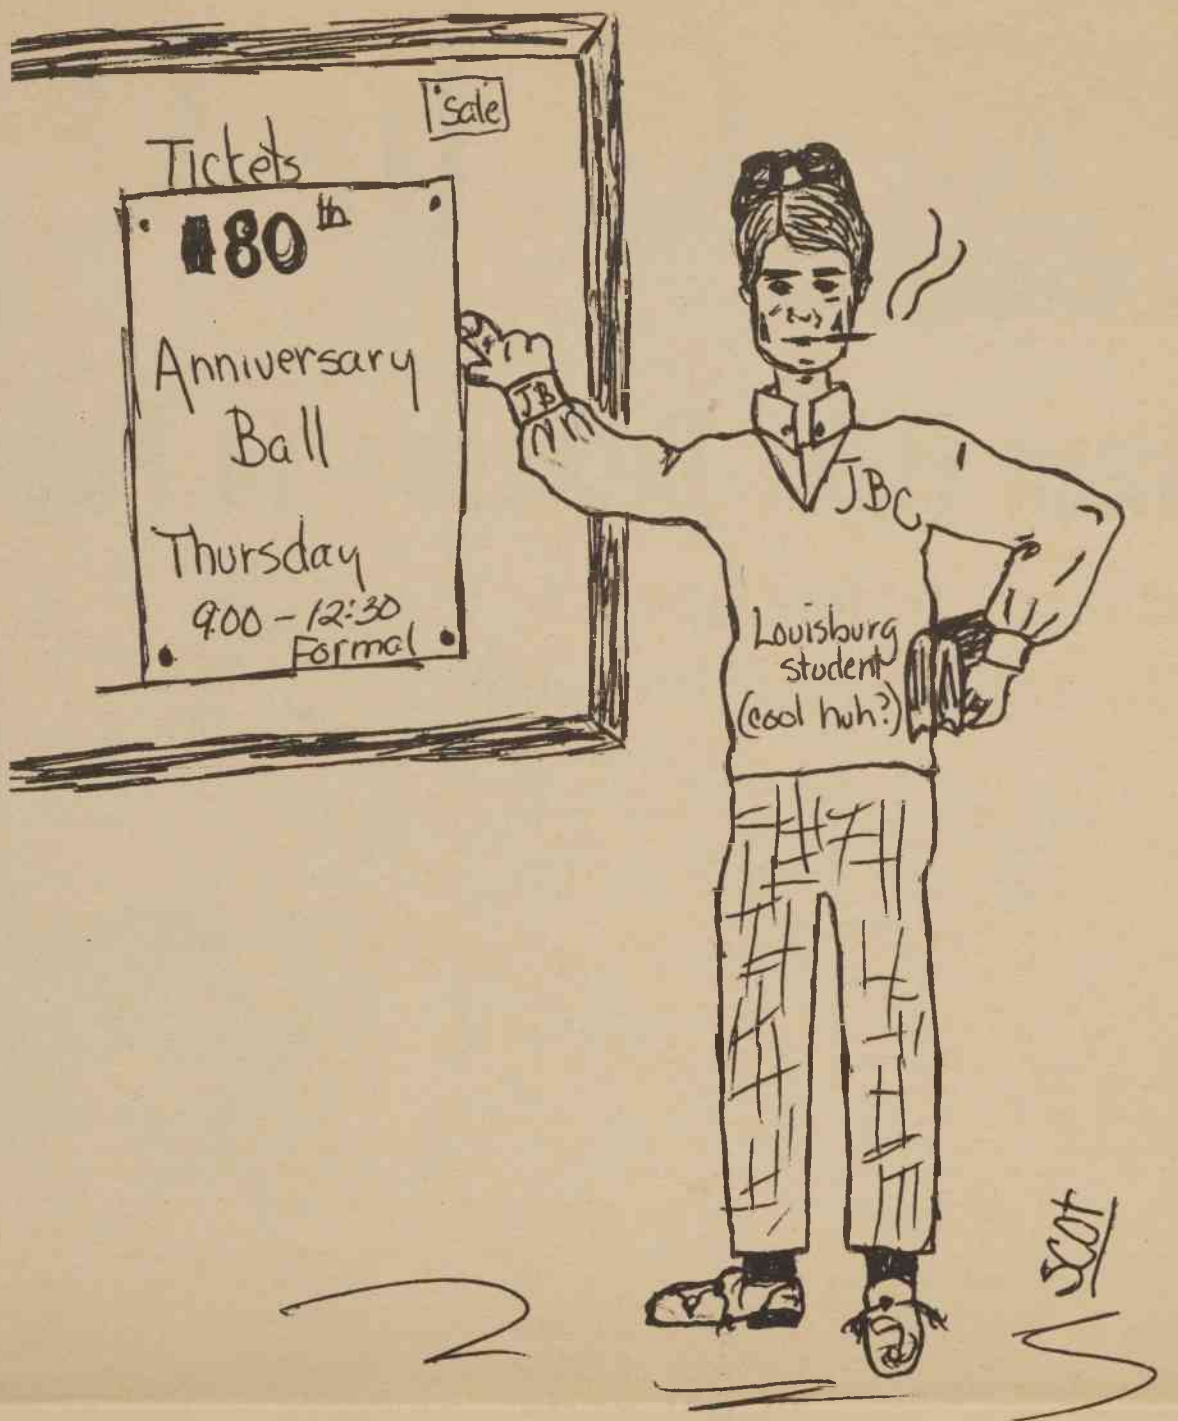 Sale
Tickets
180th
Anniversary
Ball
Thursday
9:00 - 12:30
Formal
JB
JBC
Louisburg
student
(cool huh?)
SCOT